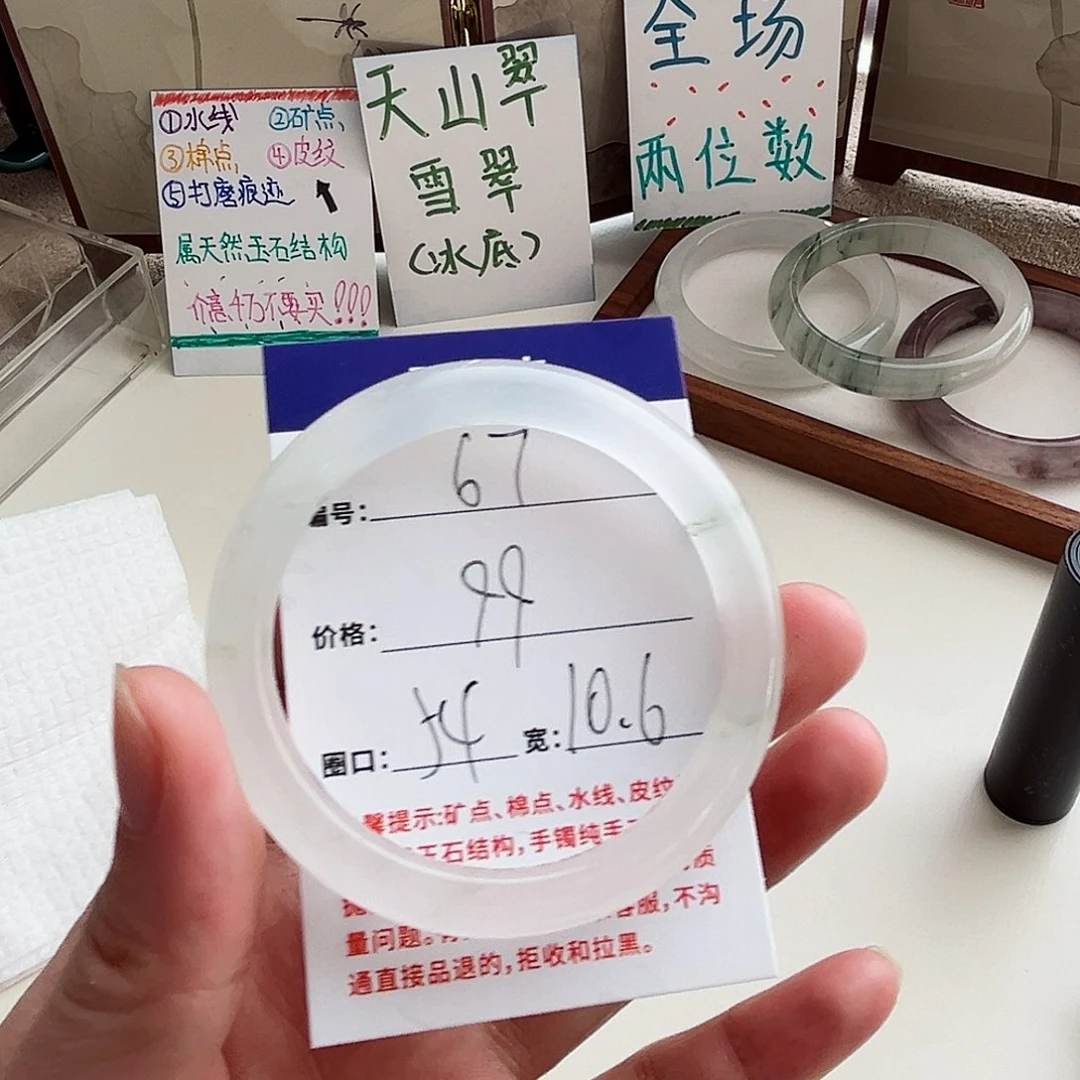 ①水线 ②矿点、
③棉点, ④皮纹
⑤打磨痕迹
属天然玉石结构
介意千万不要买!!!
天山翠
雪翠
(冰底)
全场
两位数
编号: 67
价格: 99
圈口: 54 宽: 10.6
馨提示:矿点、棉点、水线、皮纹
玉石结构,手镯纯手
质
量问题。 客服,不沟
通直接品退的,拒收和拉黑。